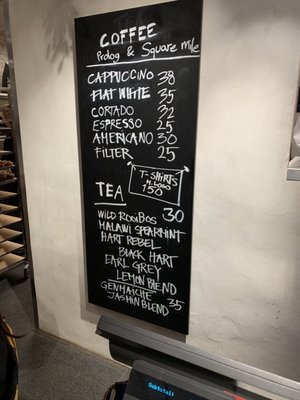 COFFEE
Prolog & Square Mile
CAPPUCCINO 38
FLAT WHITE 35
CORTADO 32
ESPRESSO 25
AMERICANO 30
FILTER 25
T-SHIRTS
M. LOGO
150
TEA
WILD ROOIBOS 30
MALAWI SPEARMINT
HART REBEL
BLACK HART
EARL GREY
LEMON BLEND
GENMAICHE 35
JASMIN BLEND
Subtotal